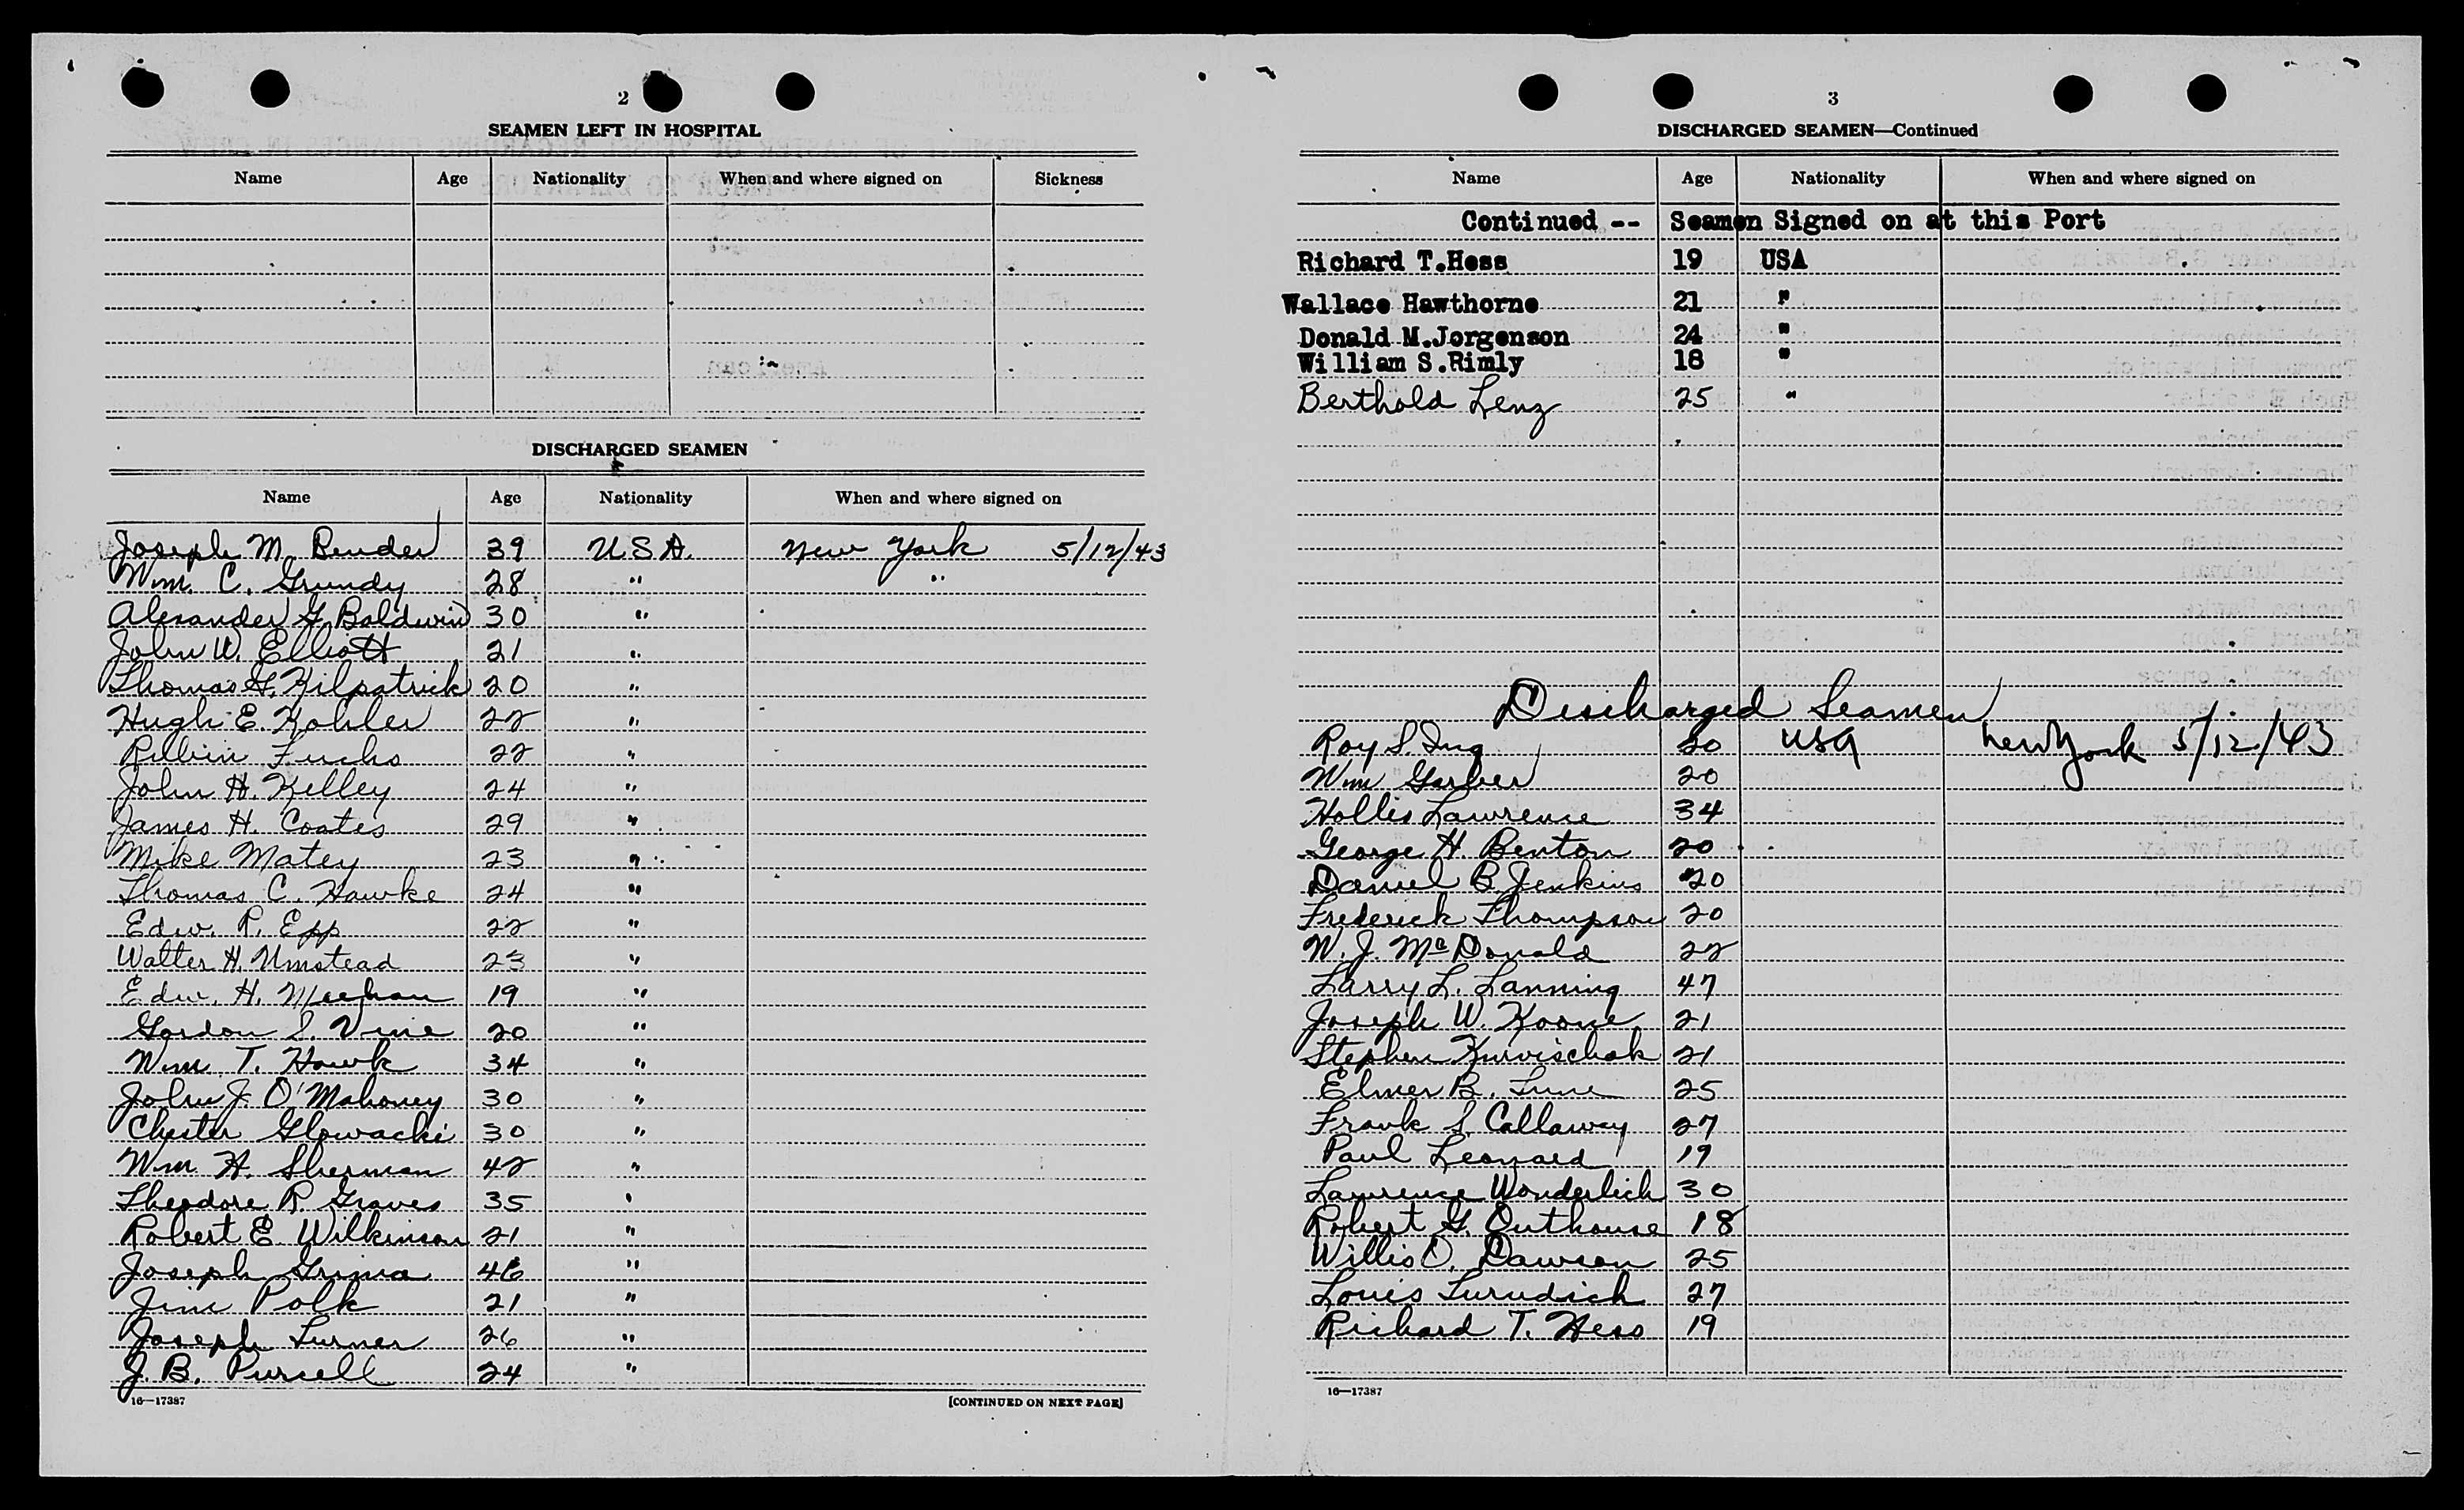 2
SEAMEN LEFT IN HOSPITAL
Name Age Nationality When and where signed on Sickness
DISCHARGED SEAMEN
Name Age Nationality When and where signed on
Joseph M. Bender 39 U.S.A. New York 5/12/43
Wm. C. Grundy 28 " "
Alexander G. Baldwin 30 "
John W. Elliott 21 "
Thomas G. Kilpatrick 20 "
Hugh E. Kohler 22 "
Fuchs 22 "
John H. Kelley 24 "
James H. Coates 29 "
Mike Matey 23 "
Thomas C. Hawke 24 "
Edw. R. Epp 22 "
Walter H. Umstead 23 "
Edw. H. Meehan 19 "
Gordon S. Vine 20 "
Wm. T. Hawk 34 "
John J. O'Mahoney 30 "
Chester Glowacki 30 "
Wm. H. Sherman 42 "
Theodore R. Graves 35 "
Robert E. Wilkinson 21 "
Joseph Grima 46 "
Jim Polk 21 "
Joseph Turner 26 "
J. B. Pursell 24 "
16—17387
[CONTINUED ON NEXT PAGE]
3
DISCHARGED SEAMEN—Continued
Name Age Nationality When and where signed on
Continued -- Seamen Signed on at this Port
Richard T.Hess 19 USA
Wallace Hawthorne 21 "
Donald M.Jorgenson 24 "
William S.Rimly 18 "
Berthold Lenz 25 "
Discharged Seamen
Roy S. Ing 20 USA New York 5/12/43
Wm Garber 20
Hollis Lawrence 34
George H. Benton 20
Daniel B. Jenkins 20
Frederick Thompson 20
W. J. McDonald 22
Larry L. Lanning 47
Joseph W. Koone 21
Stephen 21
Elmer B. 25
Frank S. Callaway 27
Paul Leonard 19
Lawrence Wonderlich 30
Robert G. Outhouse 18
Willis O. Dawson 25
Louis Turudich 27
Richard T. Hess 19
16—17387